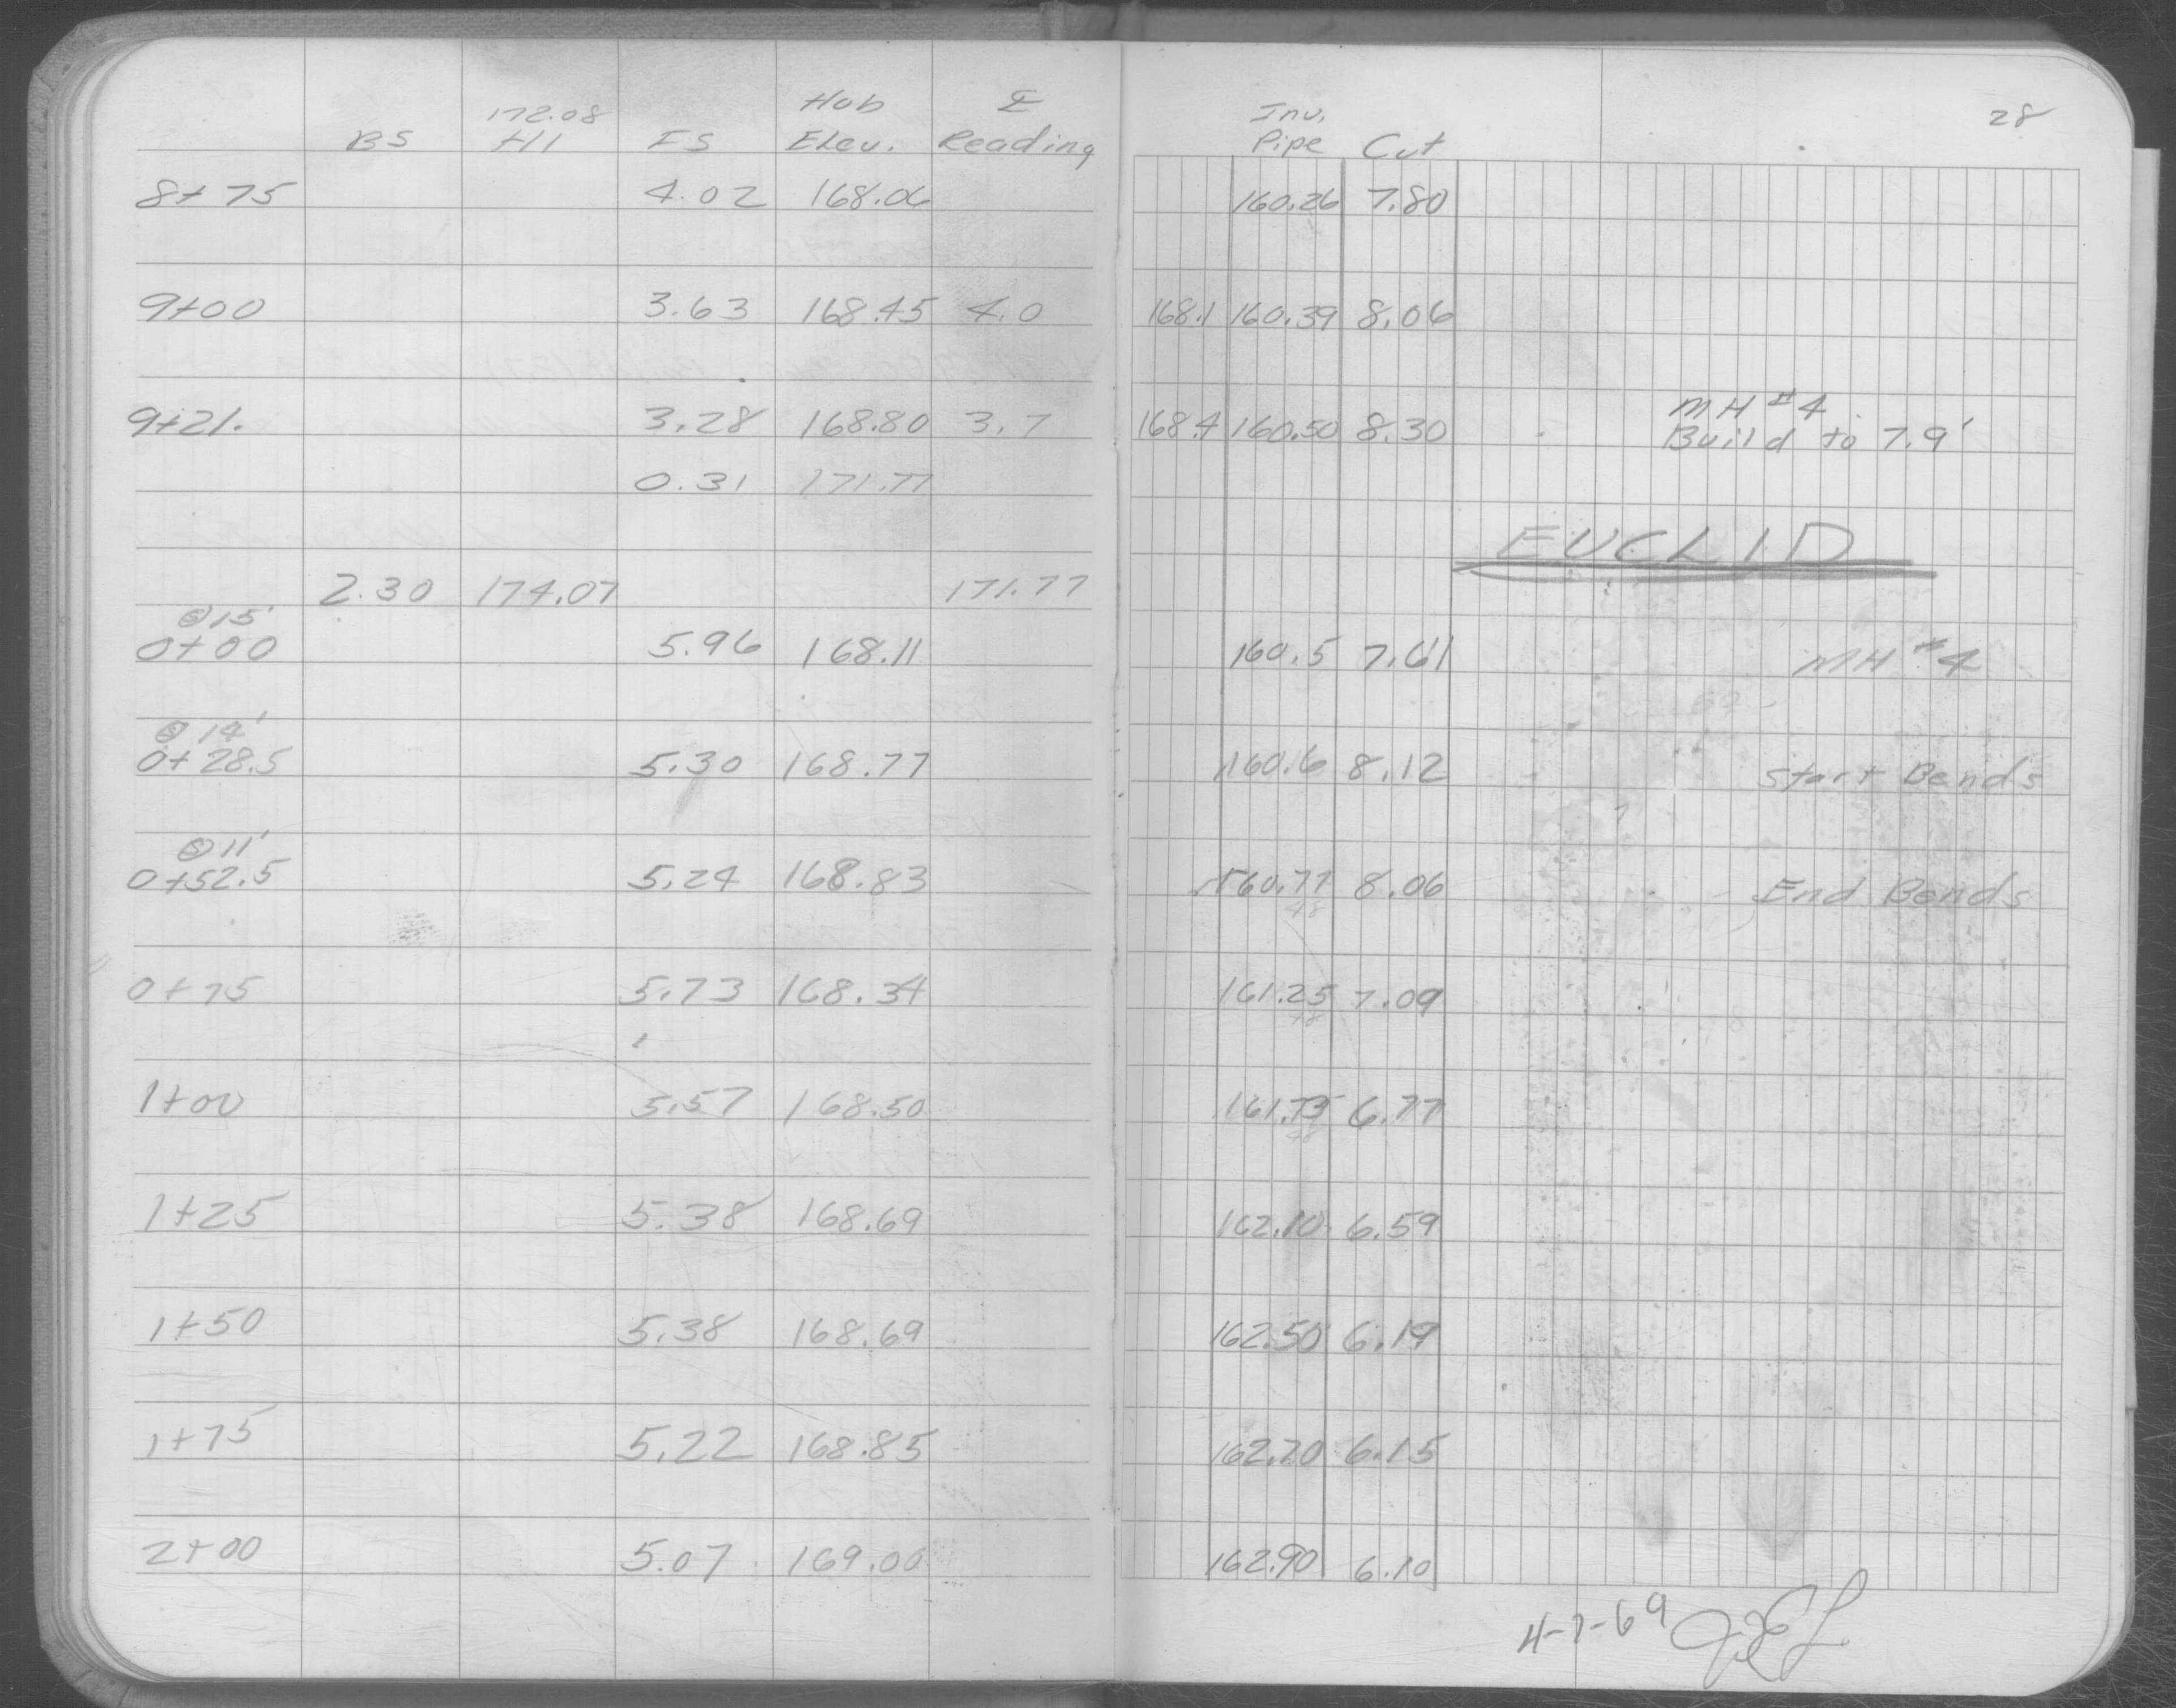 28
Hub ℄ Inv.
172.08
BS HI FS Elev. Reading Pipe Cut
8+75 4.02 168.06 160.26 7.80
9+00 3.63 168.45 4.0 168.1 160.39 8.06
MH #4
9+21. 3.28 168.80 3.7 168.4 160.50 8.30 Build to 7.9'
0.31 171.77
EUCLID
2.30 174.07 171.77
@15'
0+00 5.96 168.11 160.5 7.61 MH #4
@14'
0+28.5 5.30 168.77 160.6 8.12 Start Bends
@11'
0+52.5 5.24 168.83 160.77 8.06 End Bends
48
0+75 5.73 168.34 161.25 7.09
48
1+00 5.57 168.50 161.73 6.77
1+25 5.38 168.69 162.10 6.59
1+50 5.38 168.69 162.50 6.19
1+75 5.22 168.85 162.70 6.15
2+00 5.07 169.00 162.90 6.10
4-7-69